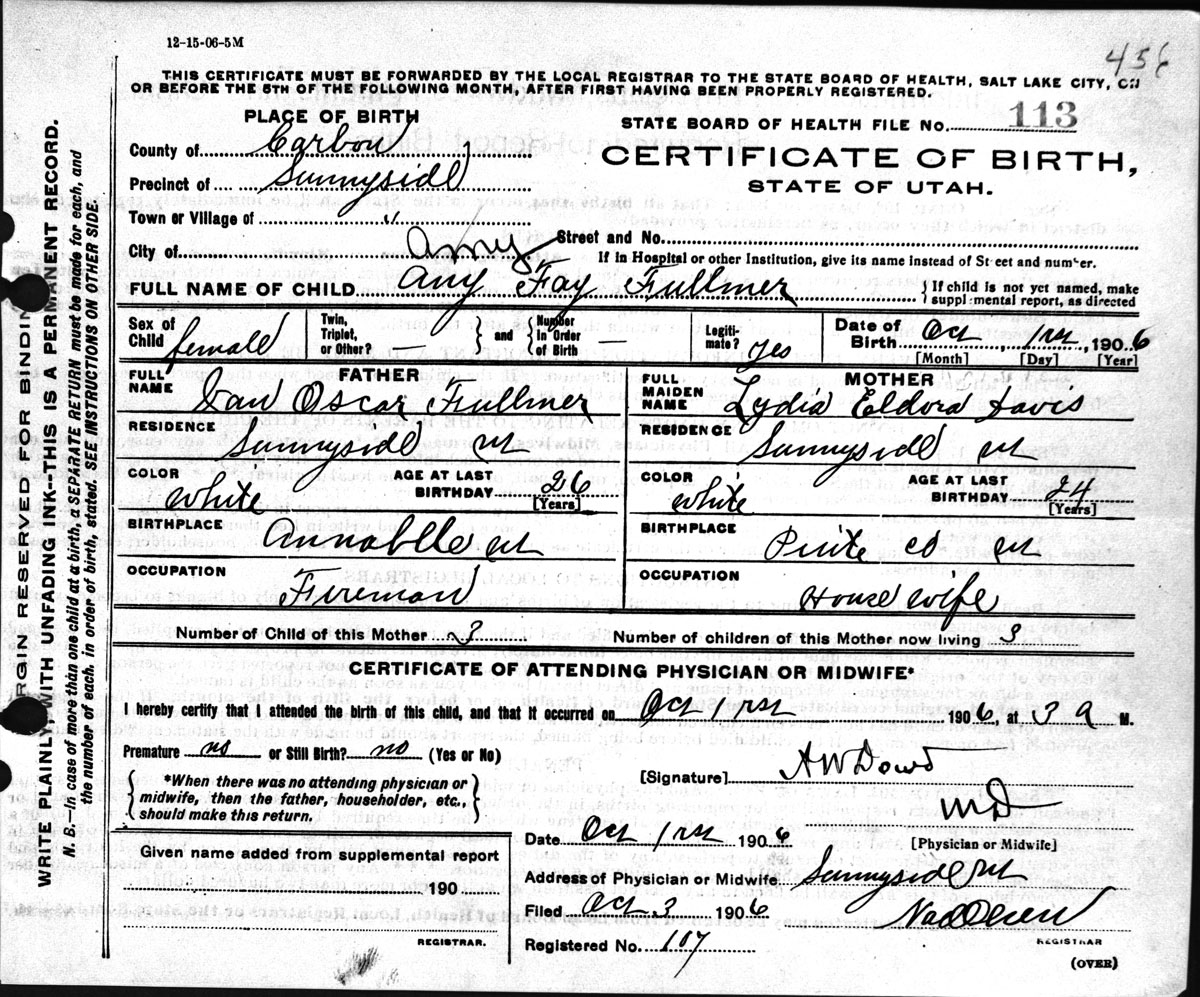 12-15-06-5M
456
THIS CERTIFICATE MUST BE FORWARDED BY THE LOCAL REGISTRAR TO THE STATE BOARD OF HEALTH, SALT LAKE CITY, ON
OR BEFORE THE 5TH OF THE FOLLOWING MONTH, AFTER FIRST HAVING BEEN PROPERLY REGISTERED.
PLACE OF BIRTH
STATE BOARD OF HEALTH FILE No. 113
County of Carbon
CERTIFICATE OF BIRTH,
Precinct of Sunnyside
STATE OF UTAH.
Town or Village of "
City of
Street and No.
Amy
If in Hospital or other Institution, give its name instead of Street and number.
FULL NAME OF CHILD Any Fay Fullmer
{If child is not yet named, make supplemental report, as directed
Sex of Child female
Twin, Triplet, or Other? — and Number in Order of Birth —
Legitimate? yes
Date of Birth Oct 1rst, 1906
[Month] [Day] [Year]
FATHER
MOTHER
FULL NAME Oscar Fullmer
FULL MAIDEN NAME Lydia Eldora Davis
RESIDENCE Sunnyside Ut
RESIDENCE Sunnyside Ut
COLOR White
AGE AT LAST BIRTHDAY 26 [Years]
COLOR White
AGE AT LAST BIRTHDAY 24 [Years]
BIRTHPLACE Annabelle Ut
BIRTHPLACE Piute Co Ut
OCCUPATION Fireman
OCCUPATION House wife
Number of Child of this Mother 3
Number of children of this Mother now living 3
CERTIFICATE OF ATTENDING PHYSICIAN OR MIDWIFE*
I hereby certify that I attended the birth of this child, and that it occurred on Oct 1rst 1906, at 3 a M.
Premature no or Still Birth? no (Yes or No)
*When there was no attending physician or midwife, then the father, householder, etc., should make this return.
[Signature] A W Dowd
MD
[Physician or Midwife]
Date Oct 1rst 1906
Given name added from supplemental report
190
REGISTRAR.
Address of Physician or Midwife Sunnyside Ut
Filed Oct 3 1906
Olsen
REGISTRAR
Registered No. 107
(OVER)
MARGIN RESERVED FOR BINDING
WRITE PLAINLY WITH UNFADING INK--THIS IS A PERMANENT RECORD.
N. B.—In case of more than one child at a birth, a SEPARATE RETURN must be made for each, and
the number of each, in order of birth, stated. SEE INSTRUCTIONS ON OTHER SIDE.